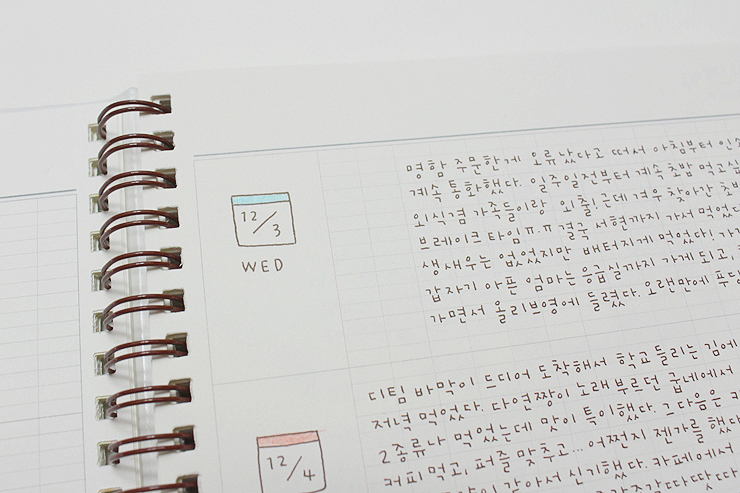 12/3
WED
명함 주문한게 오류 났다고 떠서 아침부터
계속 통화했다. 일주일전부터 계속 초밥 먹고
외식겸 가족들이랑 외출! 근데 겨우 찾아간
브레이크 타임ㅠ.ㅠ 결국 서현까지 가서 먹었
생새우는 없었지만 배터지게 먹었다!
갑자기 아픈 엄마는 응급실까지 가게 되고,
가면서 올리브영에 들렸다. 오랜만에
12/4
디팀 바막이 드디어 도착해서 학교 들리는 김에
저녁 먹었다. 다연짱이 노래부르던 굽네에서
2종류나 먹었는데 맛이 특이했다. 그다음은
커피 먹고, 퍼즐 맞추고... 어쩐지 젠가를 했
이 같아서 신기했다. 카페에서